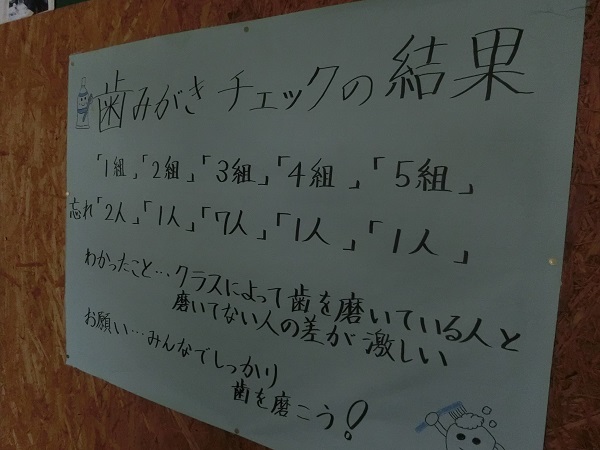 歯みがきチェックの結果
「1組」「2組」「3組」「4組」「5組」
忘れ「2人」「1人」「7人」「1人」「1人」
わかったこと…クラスによって歯を磨いている人と
磨いてない人の差が激しい
お願い…みんなでしっかり
歯を磨こう!